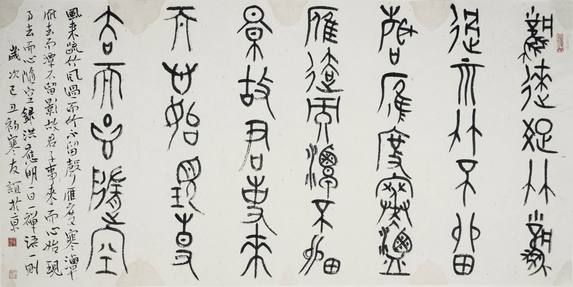 風來疏竹風
過而竹不留
聲雁度寒潭
雁去而潭不留
景故君事來
而心始現事
去而心隨空
風來疏竹風過而竹不留聲雁度寒潭
雁去而潭不留影故君子事來而心始現
事去而心隨空錄洪應明禪語一則
歲次己丑初寒友誼於京